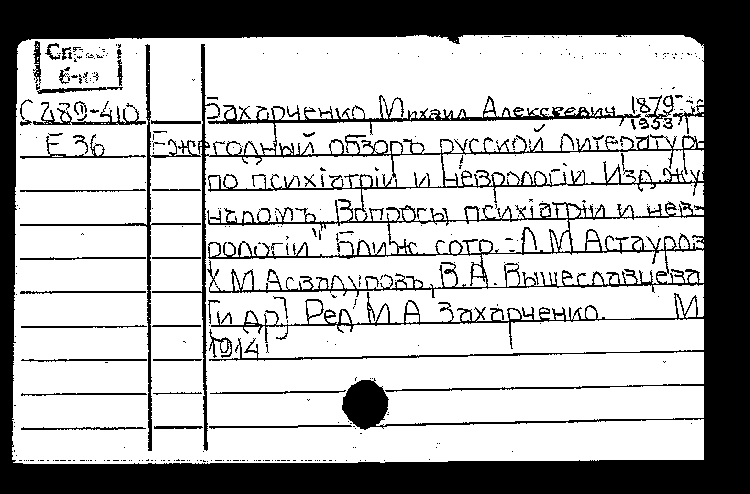 Справ.
б-ка
С 289-410
Захарченко, Михаил Алексеевич, 1879-
1953
Е 36
Ежегодный обзоръ русской литературы
по психіатріи и неврологіи. Изд. жур
наломъ "Вопросы психіатріи и нев-
рологіи". Ближ. сотр.: Л.М. Астауров
Х.М. Асвадуровъ, В.А. Вышеславцева
[и др.] Ред. М.А. Захарченко. М
1914